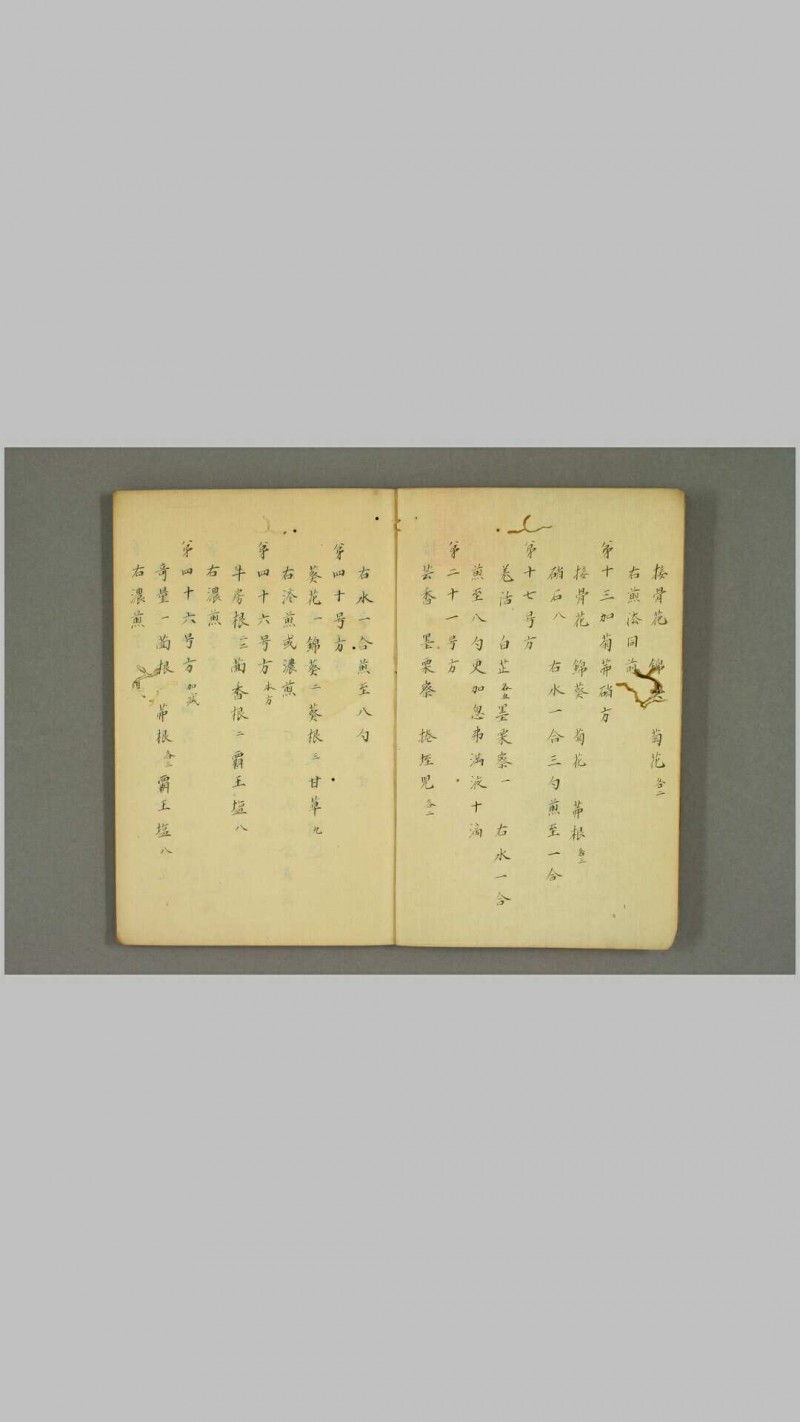 接骨花 錦葵 菊花 各二
右煎法同前
第十三加菊茀硝方
接骨花 錦葵 菊花 茀根 各二
硝石八 右水一合三勺煎至一合
第十七号方
羌活 白芷 各五 墨栗察一 右水一合
煎至八勺更加忽弗満液十滴
第二十一号方
芸香 墨栗察 捲姪児 各二
右水一合煎至八勺
第四十号方
葵花一 錦葵二 葵根三 甘草九
右泠煎或濃煎
第四十六号方 本方
牛房根二三 茴香根二 霸王塩八
右濃煎
第四十六号方 加減
茴根 茀根 各二 霸王塩八
右濃煎